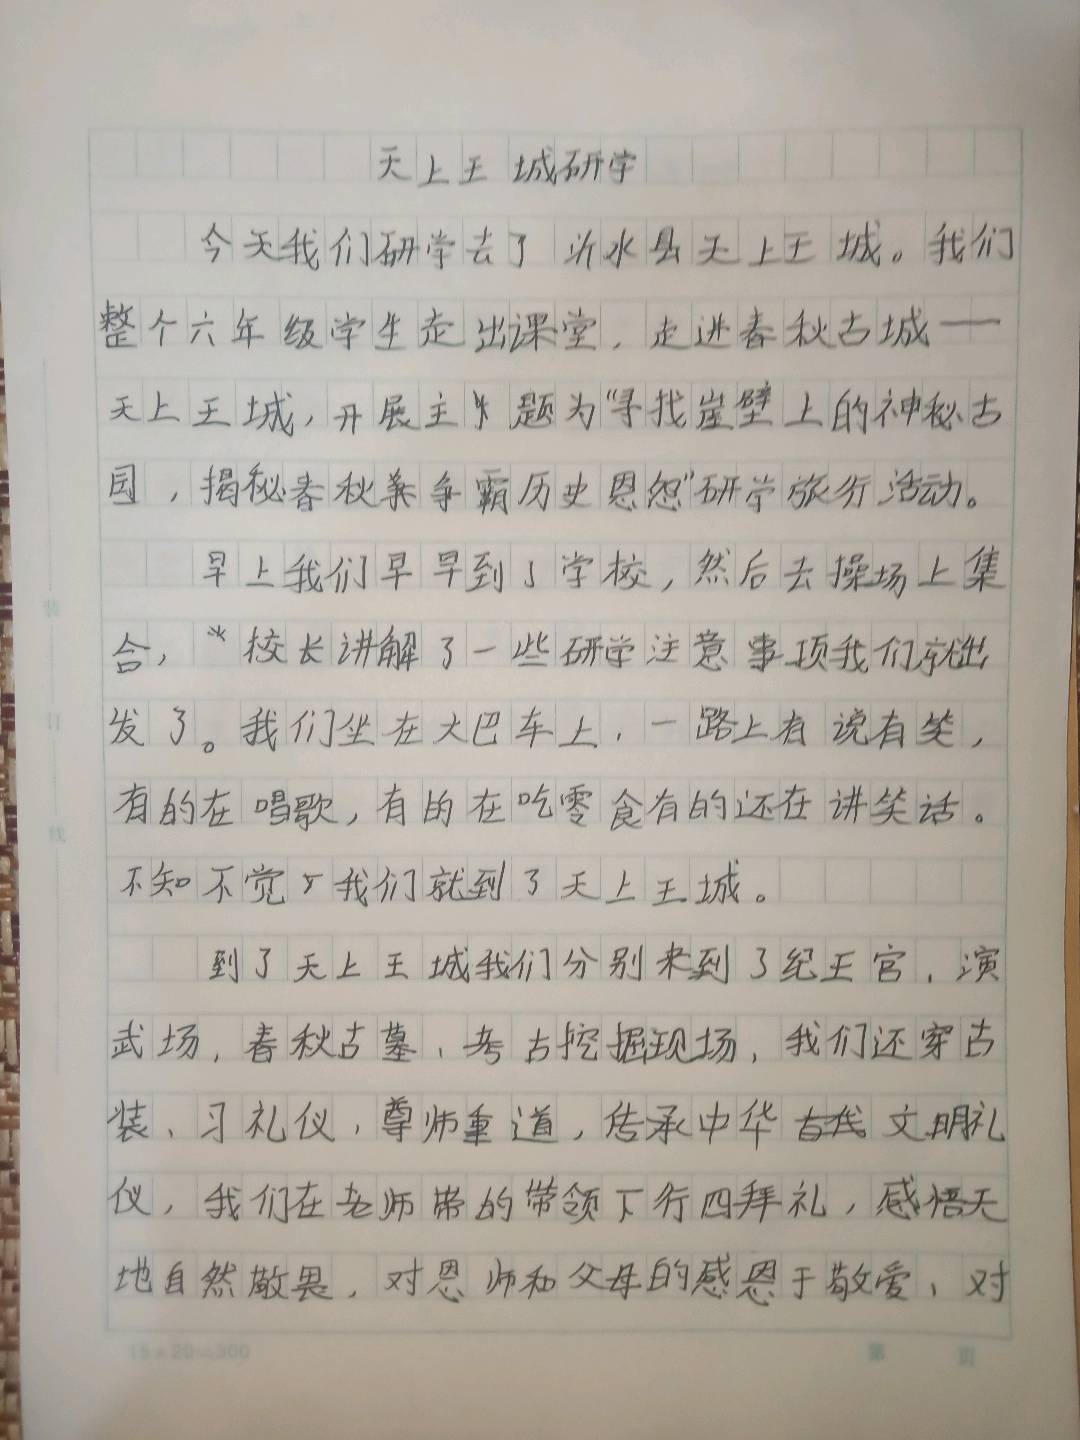 天上王城研学
今天我们研学去了沂水县天上王城。我们
整个六年级学生走出课堂,走进春秋古城——
天上王城,开展主题为"寻找崖壁上的神秘古
国,揭秘春秋争霸历史恩怨"研学旅行活动。
早上我们早早到了学校,然后去操场上集
合,校长讲解了一些研学注意事项我们就出
发了。我们坐在大巴车上,一路上有说有笑,
有的在唱歌,有的在吃零食有的还在讲笑话。
不知不觉我们就到了天上王城。
到了天上王城我们分别来到了纪王宫、演
武场,春秋古墓、考古挖掘现场,我们还穿古
装、习礼仪,尊师重道,传承中华文明礼
仪,我们在老师的带领下行四拜礼,感悟天
地自然敬畏,对恩师和父母的感恩于敬爱,对
15×20=300
第 页
装
订
线